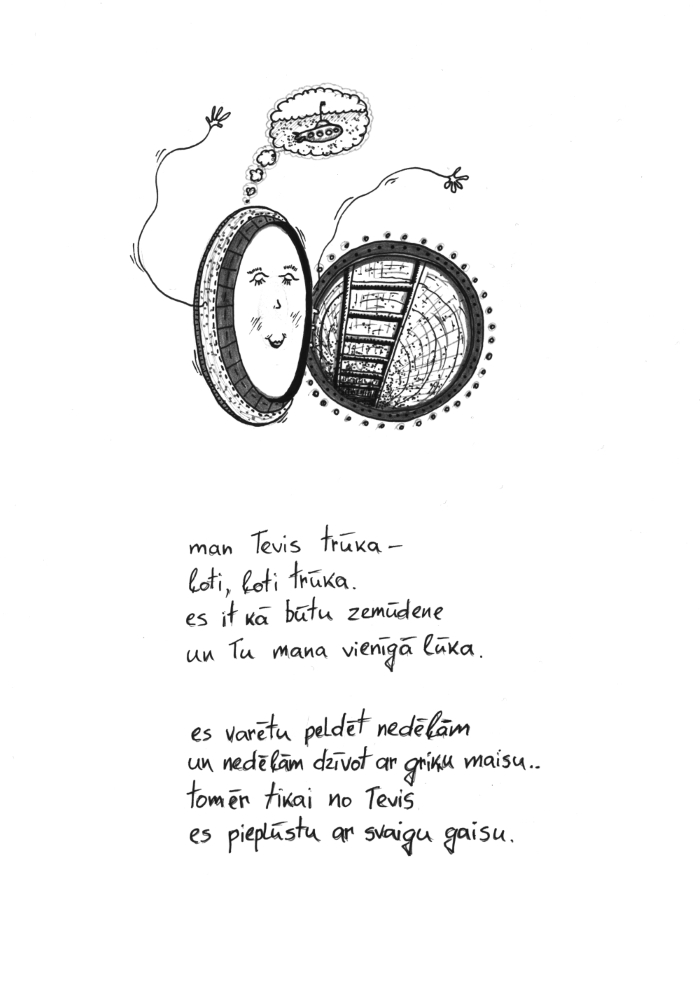 man Tevis trūka –
ļoti, ļoti trūka.
es it kā būtu zemūdene
un Tu mana vienīgā lūka.
es varētu peldēt nedēļām
un nedēļām dzīvot ar griķu maisu..
tomēr tikai no Tevis
es pieplūstu ar svaigu gaisu.